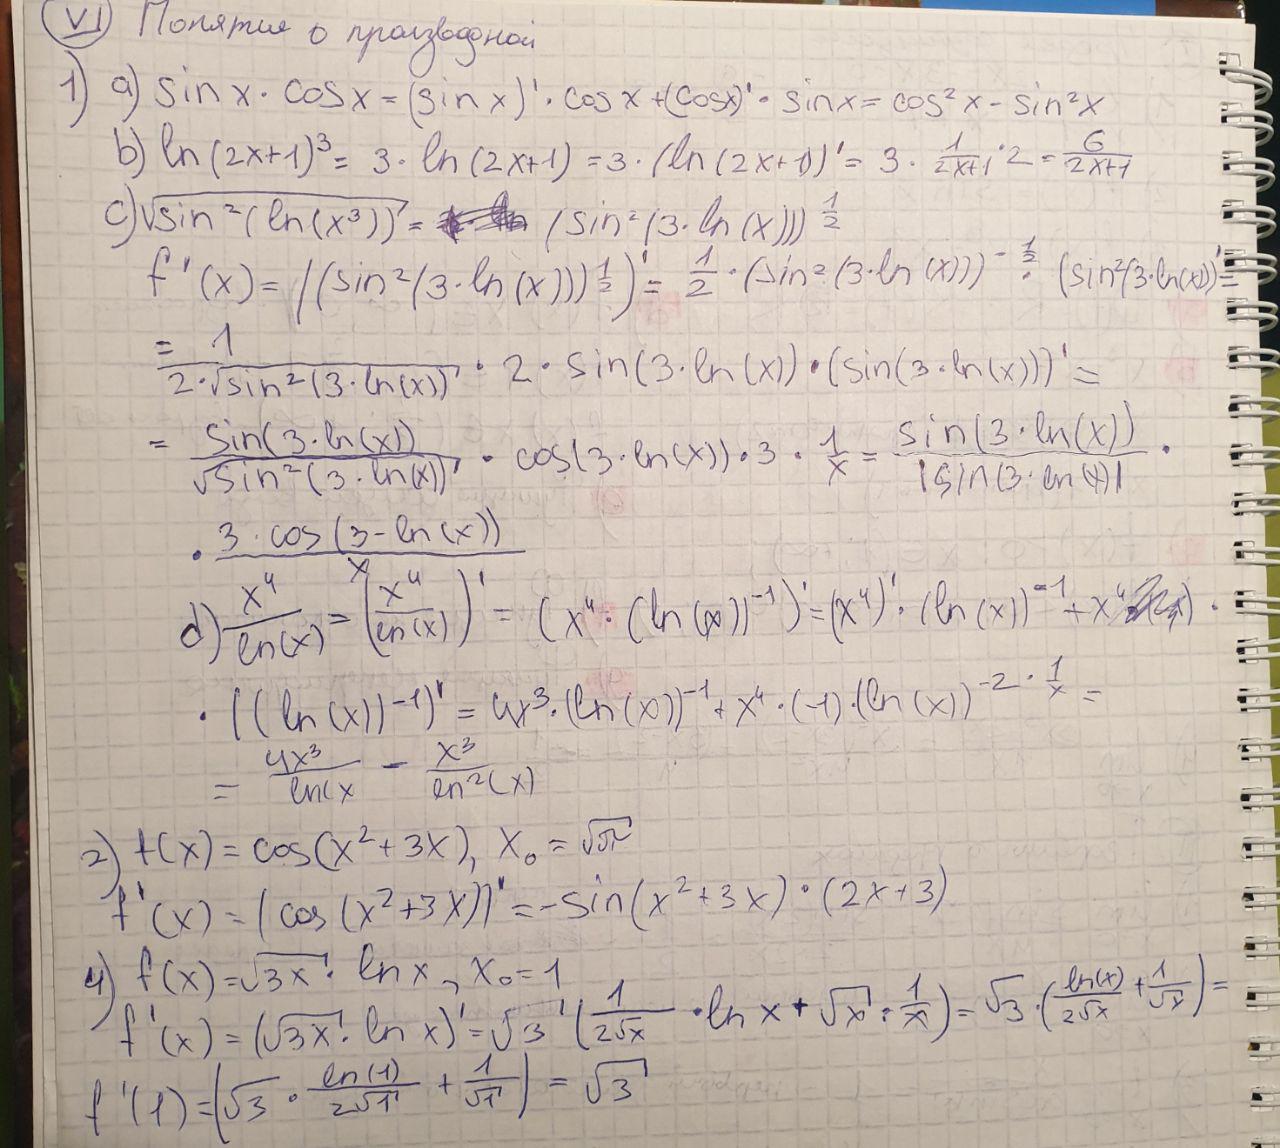 VI Понятия о производной
1) a) sin x · cos x = (sin x)' · cos x + (cos x)' · sin x = cos²x - sin²x
b) ln (2x+1)³ = 3 · ln (2x+1) = 3 · (ln (2x+1))' = 3 · 1/(2x+1) · 2 = 6/(2x+1)
c) √(sin²(ln(x³))) = (sin²(3·ln(x)))^(1/2)
f'(x) = ((sin²(3·ln(x)))^(1/2))' = 1/2 · (sin²(3·ln(x)))^(-1/2) · (sin²(3·ln(x)))' =
= 1/(2·√(sin²(3·ln(x)))) · 2 · sin(3·ln(x)) · (sin(3·ln(x)))' =
= sin(3·ln(x))/√(sin²(3·ln(x))) · cos(3·ln(x)) · 3 · 1/x = sin(3·ln(x))/|sin(3·ln(x))| ·
· 3·cos(3-ln(x))/x
d) x⁴/ln(x) = (x⁴/ln(x))' = (x⁴·(ln(x))⁻¹)' = (x⁴)' · (ln(x))⁻¹ + x⁴ ·
· ((ln(x))⁻¹)' = 4x³·(ln(x))⁻¹ + x⁴·(-1)·(ln(x))⁻² · 1/x =
= 4x³/ln(x - x³/ln²(x)
2) f(x) = cos(x²+3x), x₀ = √π
f'(x) = (cos(x²+3x))' = -sin(x²+3x)·(2x+3)
4) f(x) = √3x · ln x, x₀ = 1
f'(x) = (√3x · ln x)' = √3 (1/(2√x) · ln x + √x · 1/x) = √3·(ln(x)/(2√x) + 1/√x) =
f'(1) = (√3 · ln(1)/(2√1) + 1/√1) = √3